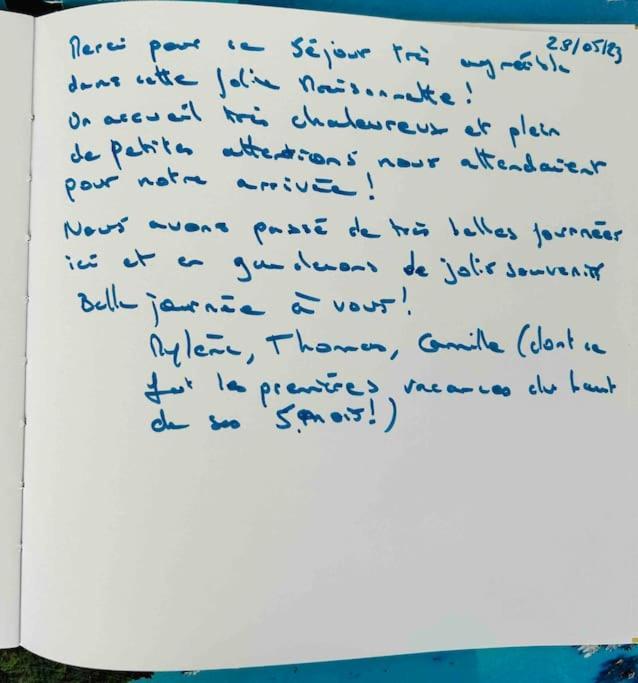 28/05/23
Merci pour ce séjour très agréable
dans cette jolie Maisonnette !
Un accueil très chaleureux et plein
de petites attentions nous attendaient
pour notre arrivée !
Nous avons passé de très belles journées
ici et en garderons de jolis souvenirs
Belle journée à vous !
Mylène, Thomas, Camille (dont ce
fut les premières vacances du haut
de ses 5 mois !)